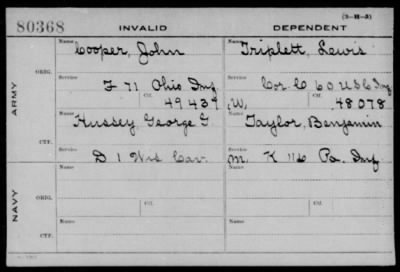 (3-H-3)
80368 INVALID DEPENDENT
Name Cooper, John Name Triplett, Lewis
ORIG. Service F 71 Ohio Inf Service Cor. C 60 U S C Inf
Ctf. 49439 W, Ctf. 48078
ARMY
Name Hussey, George G. Name Taylor, Benjamin
CTF. Service D 1 Wis Cav. Service M. K 116 Pa. Inf
NAVY
Name Name
ORIG. Service Ctf. Service Ctf.
Name Name
CTF. Service Service